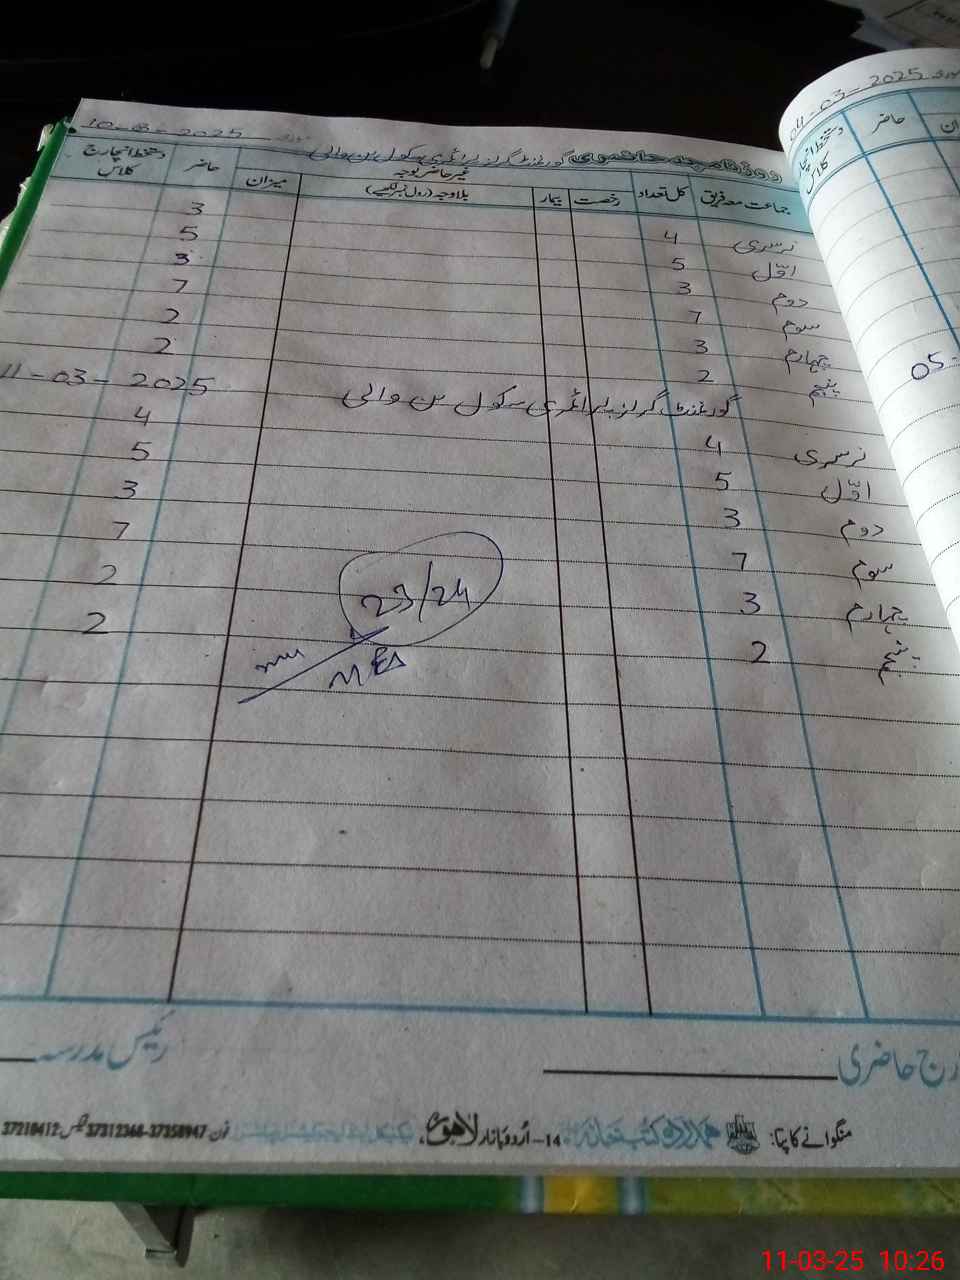 روزنامچہ حاضری گورنمنٹ گرلز پرائمری سکول بن والی 2025-03-10
جماعت معہ فریق کل تعداد رخصت بیمار غیر حاضر بوجہ بلاوجہ (رول نمبر لکھیے) میزان حاضر دستخط انچارج کلاس
نرسری 4 3
اوّل 5 5
دوم 3 3
سوم 7 7
چہارم 3 2
پنجم 2 2
گورنمنٹ گرلز پرائمری سکول بن والی 11-03-2025
نرسری 4 4
اوّل 5 5
دوم 3 3
سوم 7 7
چہارم 3 2
پنجم 2 2
23/24
MEA
درج حاضری
رئیس مدرسہ
منگوانے کا پتا: ہمدرد کتب خانہ 14-اُردو بازار لاہور، فون: 37358947-37312368 فیکس: 37210412
04-03-2025
حاضر
دستخط انچارج کلاس
05-
11-03-25 10:26